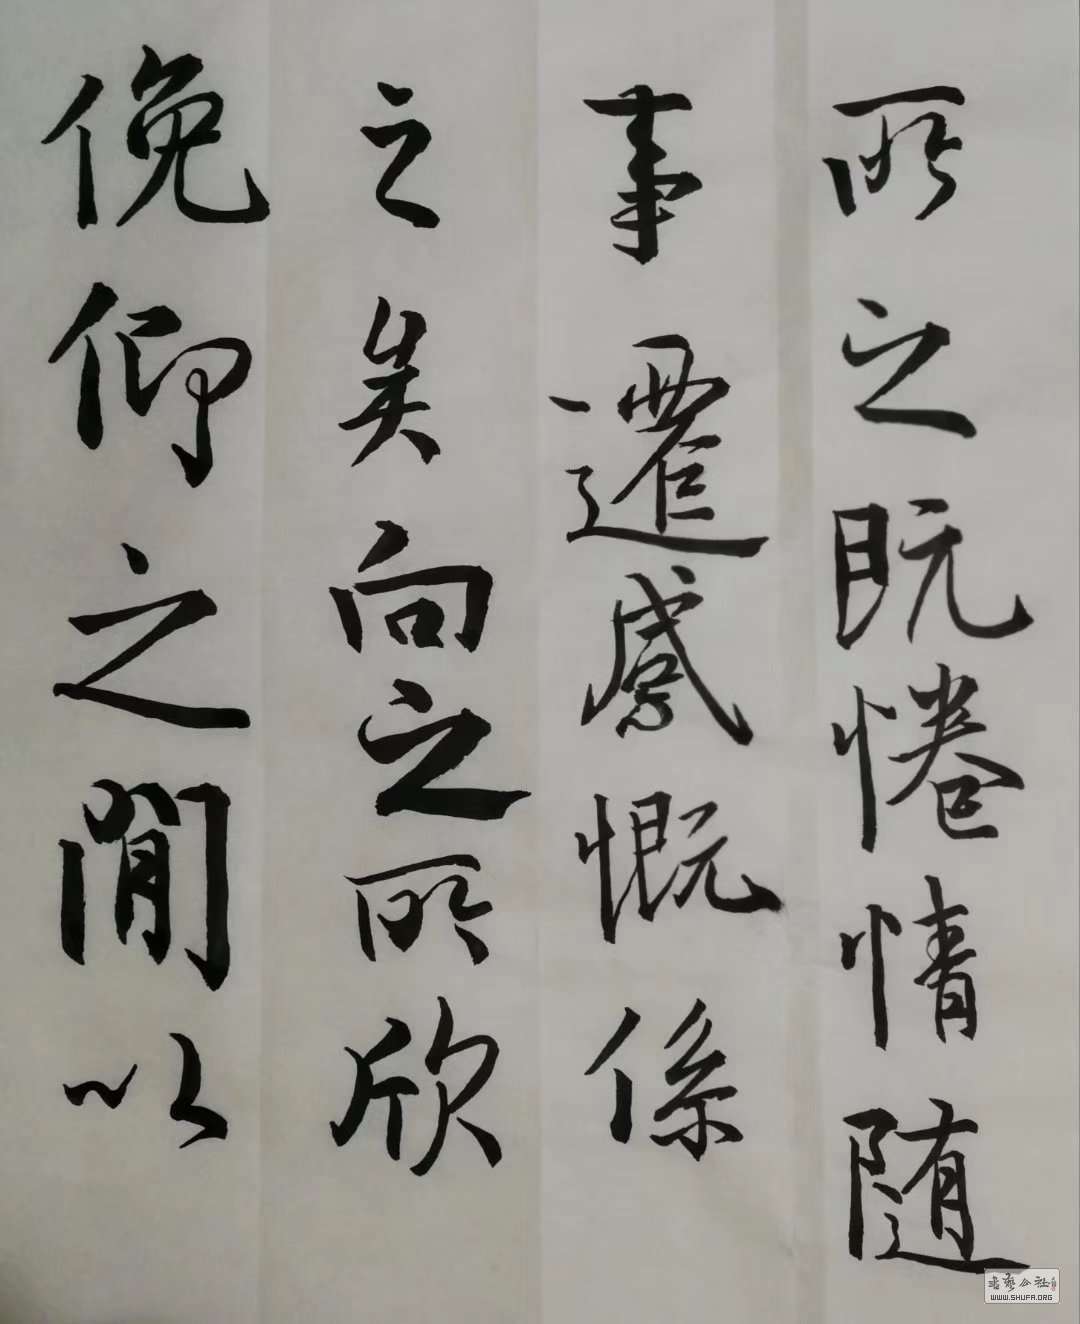 所之既惓情随
事遷感慨係
之矣向之所欣
俛仰之閒以
書藝公社
WWW.SHUFA.ORG